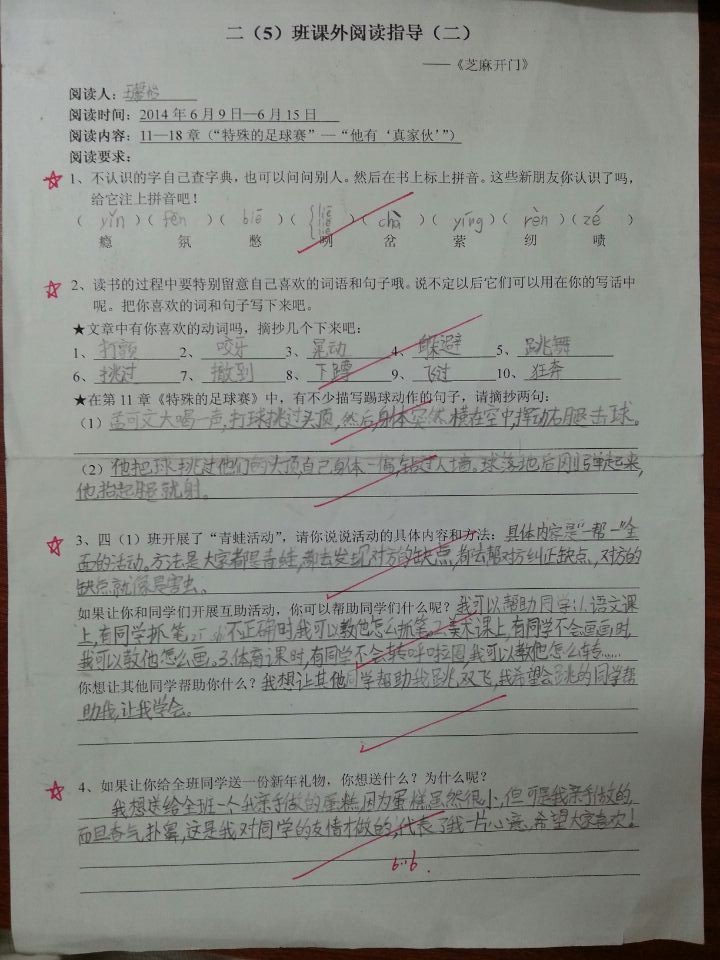 二（5）班课外阅读指导（二）
——《芝麻开门》
阅读人：
阅读时间：2014年6月9日—6月15日
阅读内容：11—18章（“特殊的足球赛”—“他有‘真家伙’”）
阅读要求：
1、不认识的字自己查字典，也可以问问别人。然后在书上标上拼音。这些新朋友你认识了吗，
给它注上拼音吧！
（yǐn）（fēn）（biē）（liē lié lie）（chà）（yíng）（rèn）（zé）
瘾 氛 憋 咧 岔 萦 纫 啧
2、读书的过程中要特别留意自己喜欢的词语和句子哦。说不定以后它们可以用在你的写话中
呢。把你喜欢的词和句子写下来吧。
★文章中有你喜欢的动词吗，摘抄几个下来吧：
1、打颤 2、咬牙 3、晃动 4、躲避 5、跳舞
6、挑过 7、撤到 8、下蹲 9、飞过 10、狂奔
★在第11章《特殊的足球赛》中，有不少描写踢球动作的句子，请摘抄两句：
（1）孟可文大喝一声，打球挑过头顶，然后身体突然横在空中，挥动右腿击球。
（2）他把球挑过他们的头顶，自己身体一偏，钻过人墙。球落地后刚弹起来，
他抬起腿就射。
3、四（1）班开展了“青蛙活动”，请你说说活动的具体内容和方法：具体内容是“一帮一”全
面的活动。方法是大家都是青蛙，都去发现对方的缺点，都去帮对方纠正缺点，对方的
缺点就像是害虫。
如果让你和同学们开展互助活动，你可以帮助同学们什么呢？我可以帮助同学：1.语文课
上，有同学抓笔 不正确时我可以教他怎么抓笔。2.美术课上，有同学不会画画时，
我可以教他怎么画。3.体育课时，有同学不会转呼啦圈，我可以教他怎么转……
你想让其他同学帮助你什么？我想让其他同学帮助我跳双飞，我希望会跳的同学帮
助我，让我学会。
4、如果让你给全班同学送一份新年礼物，你想送什么？为什么呢？
我想送给全班一个我亲手做的蛋糕，因为蛋糕虽然很小，但可是我亲手做的，
而且香气扑鼻，这是我对同学的友情才做的，代表了我一片心意，希望大家喜欢！
6..6.